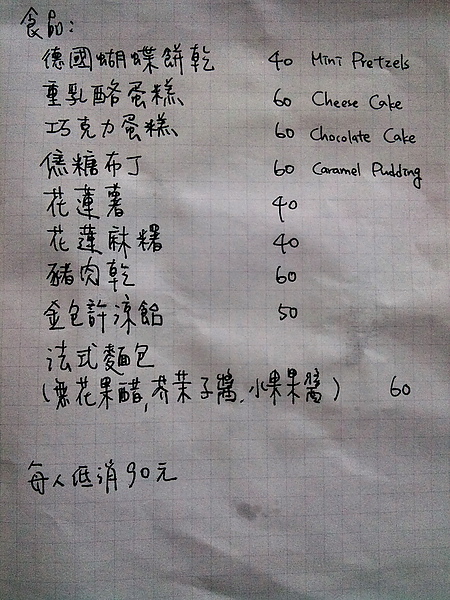 食品:
德國蝴蝶餅乾 40 Mini Pretzels
重乳酪蛋糕 60 Cheese Cake
巧克力蛋糕 60 Chocolate Cake
焦糖布丁 60 Caramel Pudding
花蓮薯 40
花蓮麻糬 40
豬肉乾 60
金包許涼餡 50
法式麵包
(花果醋,芥茉子醬,小果果醬) 60
每人低消90元